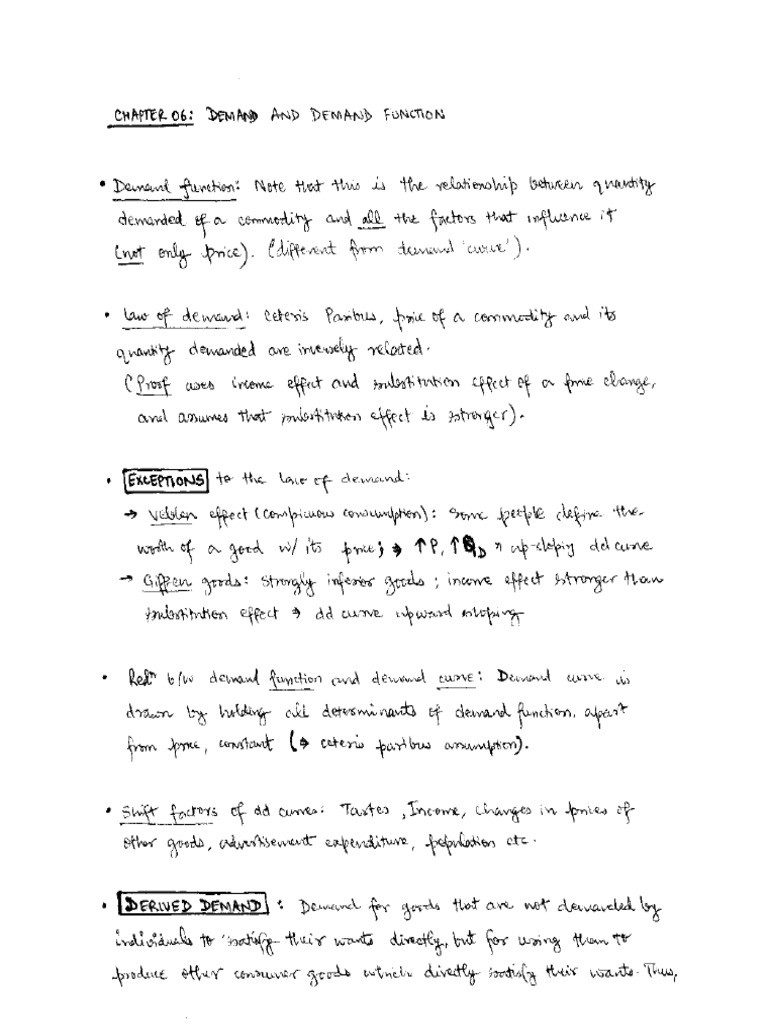 CHAPTER 06: DEMAND AND DEMAND FUNCTION
• Demand function: Note that this is the relationship between quantity
demanded of a commodity and all the factors that influence it
(not only price). (different from demand 'curve').
• Law of demand: Ceteris Paribus, price of a commodity and its
quantity demanded are inversely related.
(Proof uses income effect and substitution effect of a price change,
and assumes that substitution effect is stronger).
• EXCEPTIONS to the law of demand:
→ Veblen effect (conspicuous consumption): Some people define the
worth of a good w/ its price; → ↑P, ↑QD → up-sloping dd curve
→ Giffen goods: Strongly inferior goods; income effect stronger than
substitution effect → dd curve upward sloping
• Relⁿ b/w demand function and demand curve: Demand curve is
drawn by holding all determinants of demand function, apart
from price, constant (→ ceteris paribus assumption).
• Shift factors of dd curves: Tastes, Income, changes in prices of
other goods, advertisement expenditure, population etc.
• DERIVED DEMAND: Demand for goods that are not demanded by
individuals to satisfy their wants directly, but for using them to
produce other consumer goods which directly satisfy their wants. Thus,